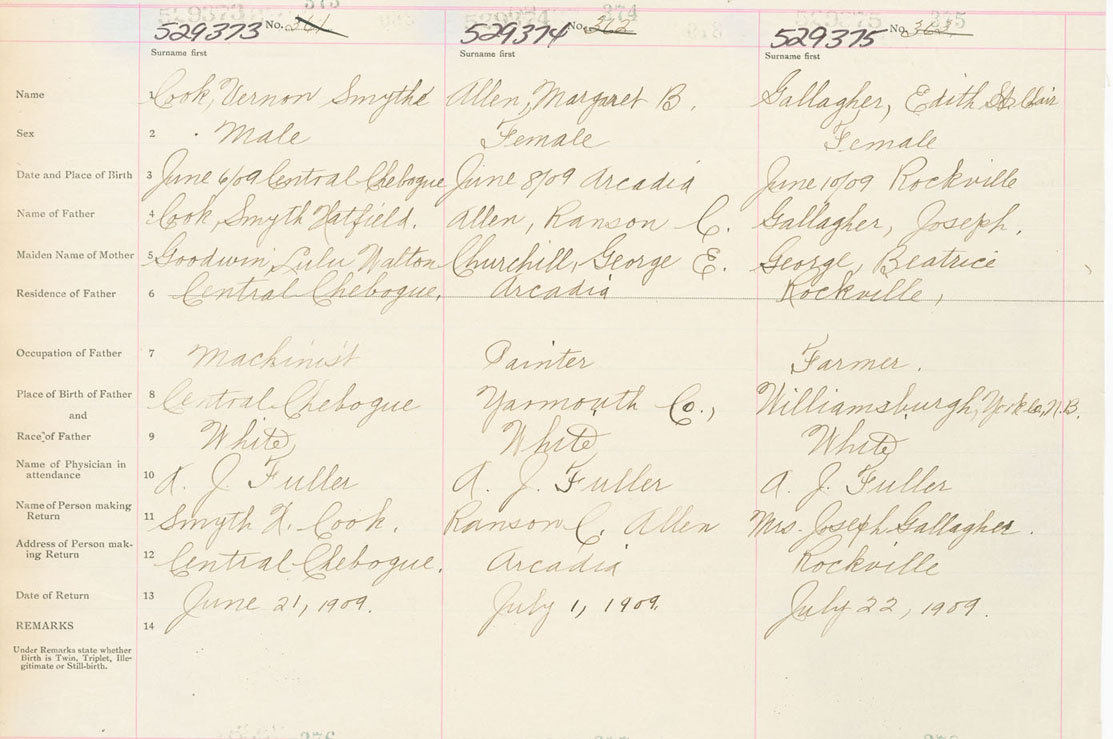 373 374 375
529373 No. 361 529374 No. 362 529375 No. 363
Surname first Surname first Surname first
Name 1 Cook, Vernon Smythe Allen, Margaret B. Gallagher, Edith St. Clair
Sex 2 Male Female Female
Date and Place of Birth 3 June 6/09 Central Chebogue June 8/09 Arcadia June 10/09 Rockville
Name of Father 4 Cook, Smyth Hatfield. Allen, Ranson C. Gallagher, Joseph.
Maiden Name of Mother 5 Goodwin, Lulu Walton Churchill, George E. George, Beatrice
Residence of Father 6 Central Chebogue. Arcadia Rockville,
Occupation of Father 7 Machinist Painter Farmer.
Place of Birth of Father 8 Central Chebogue Yarmouth Co., Williamsburgh, York Co, N.B.
and
Race of Father 9 White White White
Name of Physician in
attendance 10 A. J. Fuller A. J. Fuller A. J. Fuller
Name of Person making
Return 11 Smyth H. Cook. Ranson C. Allen Mrs. Joseph Gallagher.
Address of Person mak-
ing Return 12 Central Chebogue. Arcadia Rockville
Date of Return 13 June 21, 1909. July 1, 1909. July 22, 1909.
REMARKS 14
Under Remarks state whether
Birth is Twin, Triplet, Ille-
gitimate or Still-birth.
376